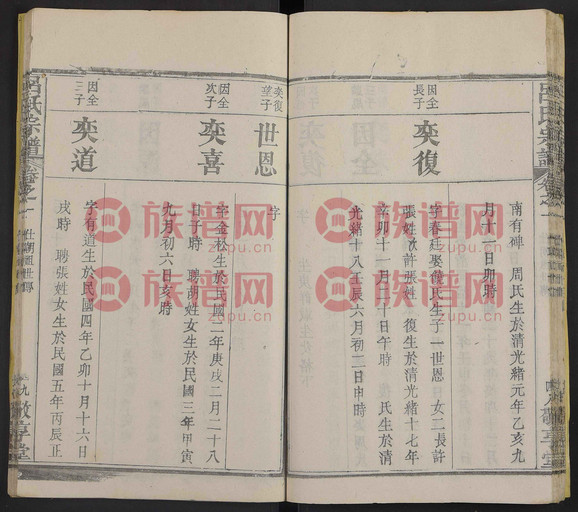 南有碑 周氏生於清光緒元年乙亥九
月十一日卯時
因全
長子
奕復
字春廷娶戴氏生子一世恩 女二長許
張姓次許張姓 復生於清光緒十七年
辛卯十一月二十日午時 氏生於清
光緒十八壬辰六月初二日申時
奕復
子
世恩
字
因全
次子
奕喜
字金松生於民國二年庚戌二月二十八
日子時 聘 姓女生於民國三年甲寅
九月初六日亥時
因全
三子
奕道
字有道生於民國四年乙卯十月十六日
戌時 聘張姓女生於民國五年丙辰正
呂氏宗譜
卷之一
九
敬享堂
族谱网
zupu.cn
族谱网
zupu.cn
族谱网
zupu.cn
族谱网
zupu.cn